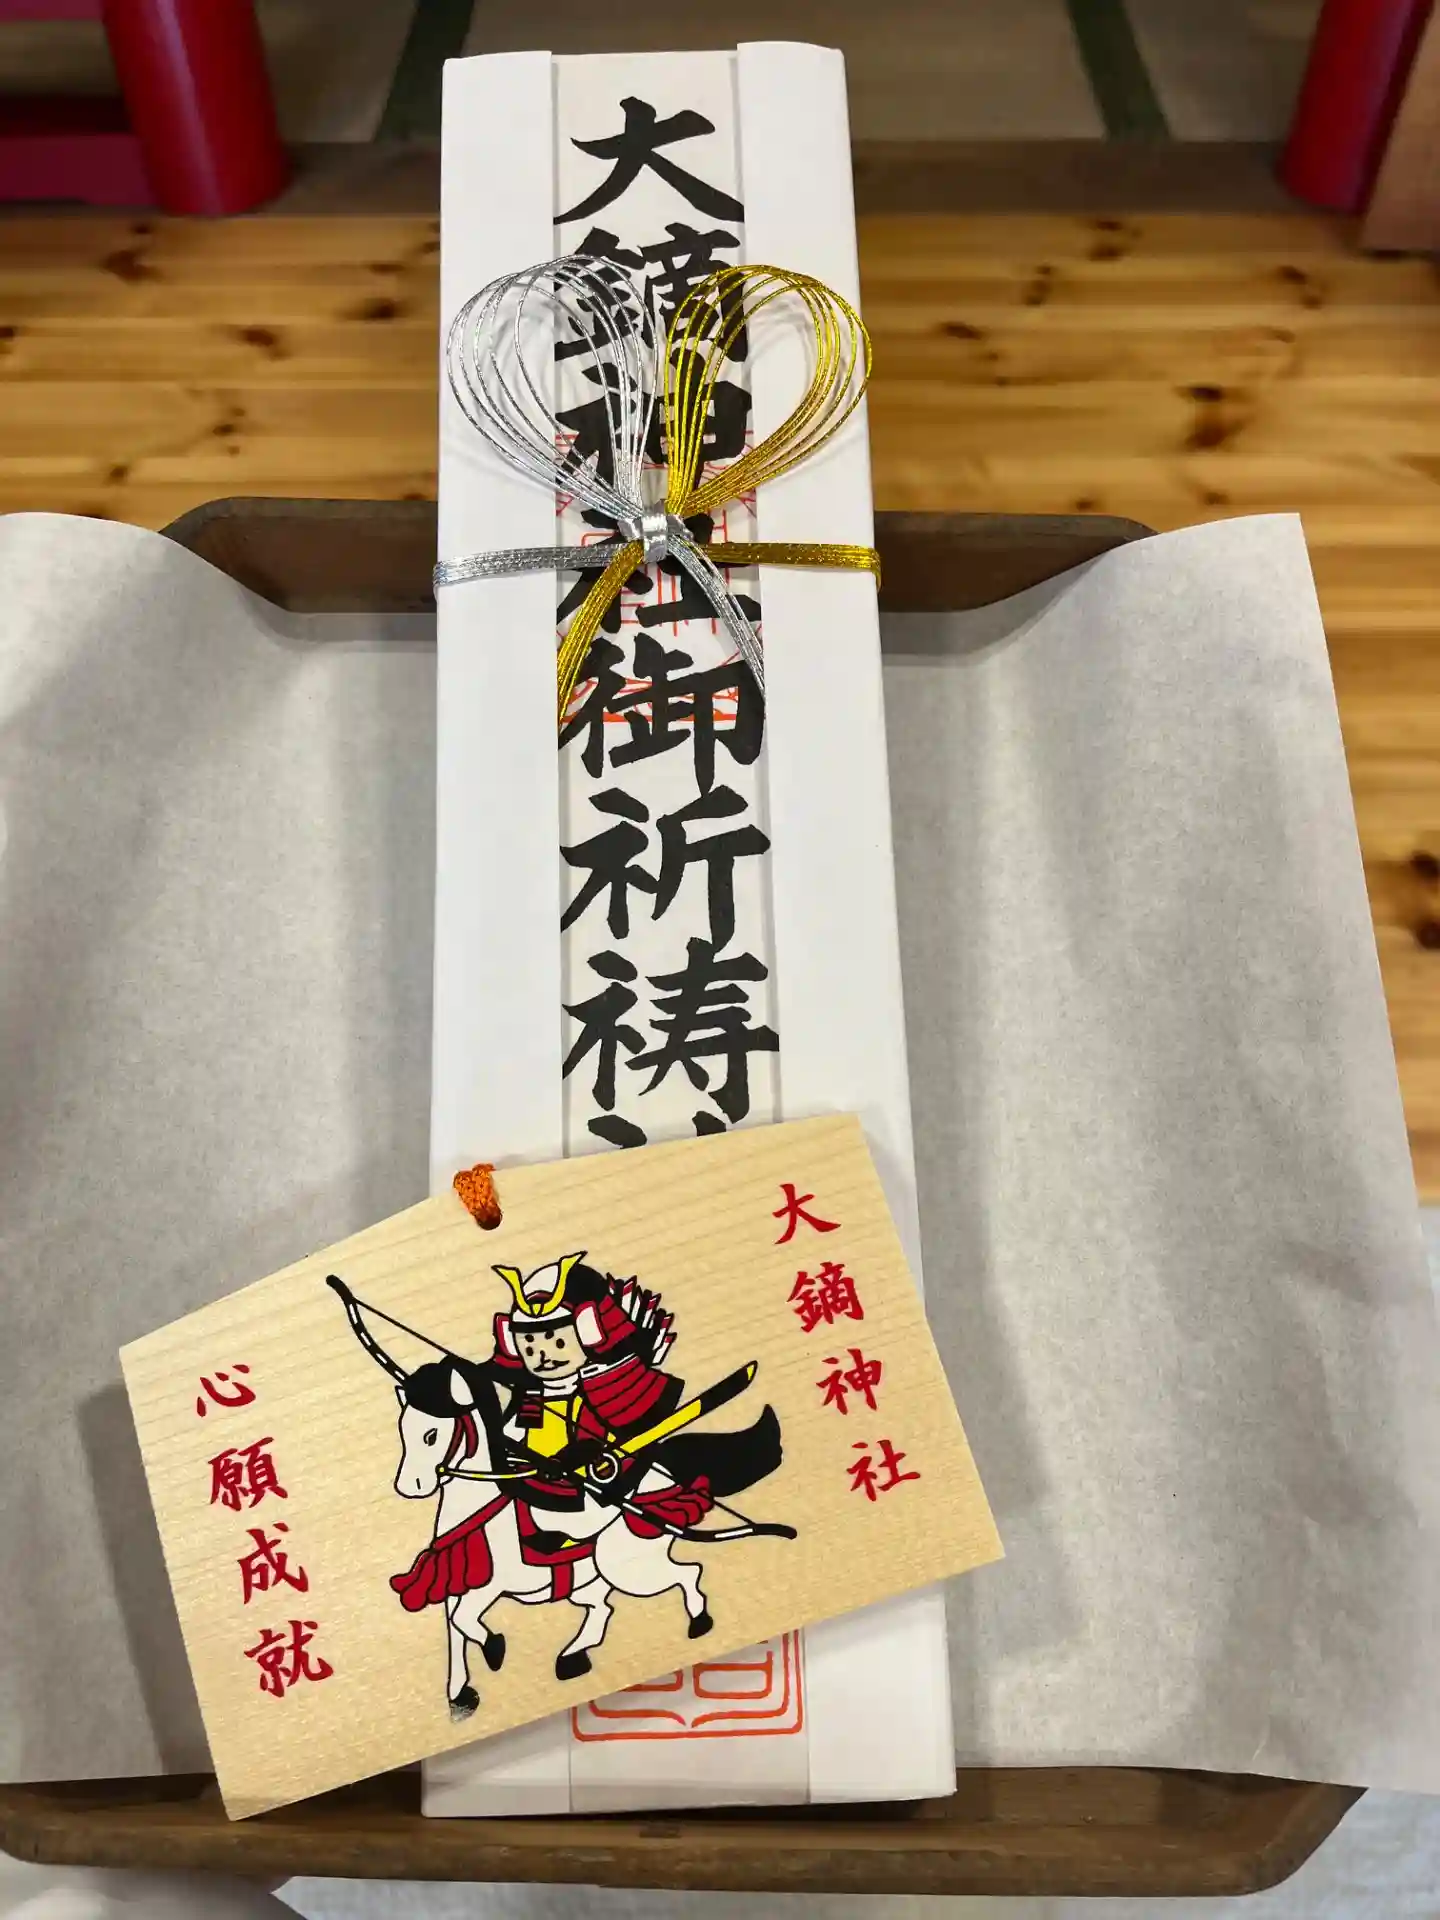 大鏑神社御祈祷
大鏑神社
心願成就